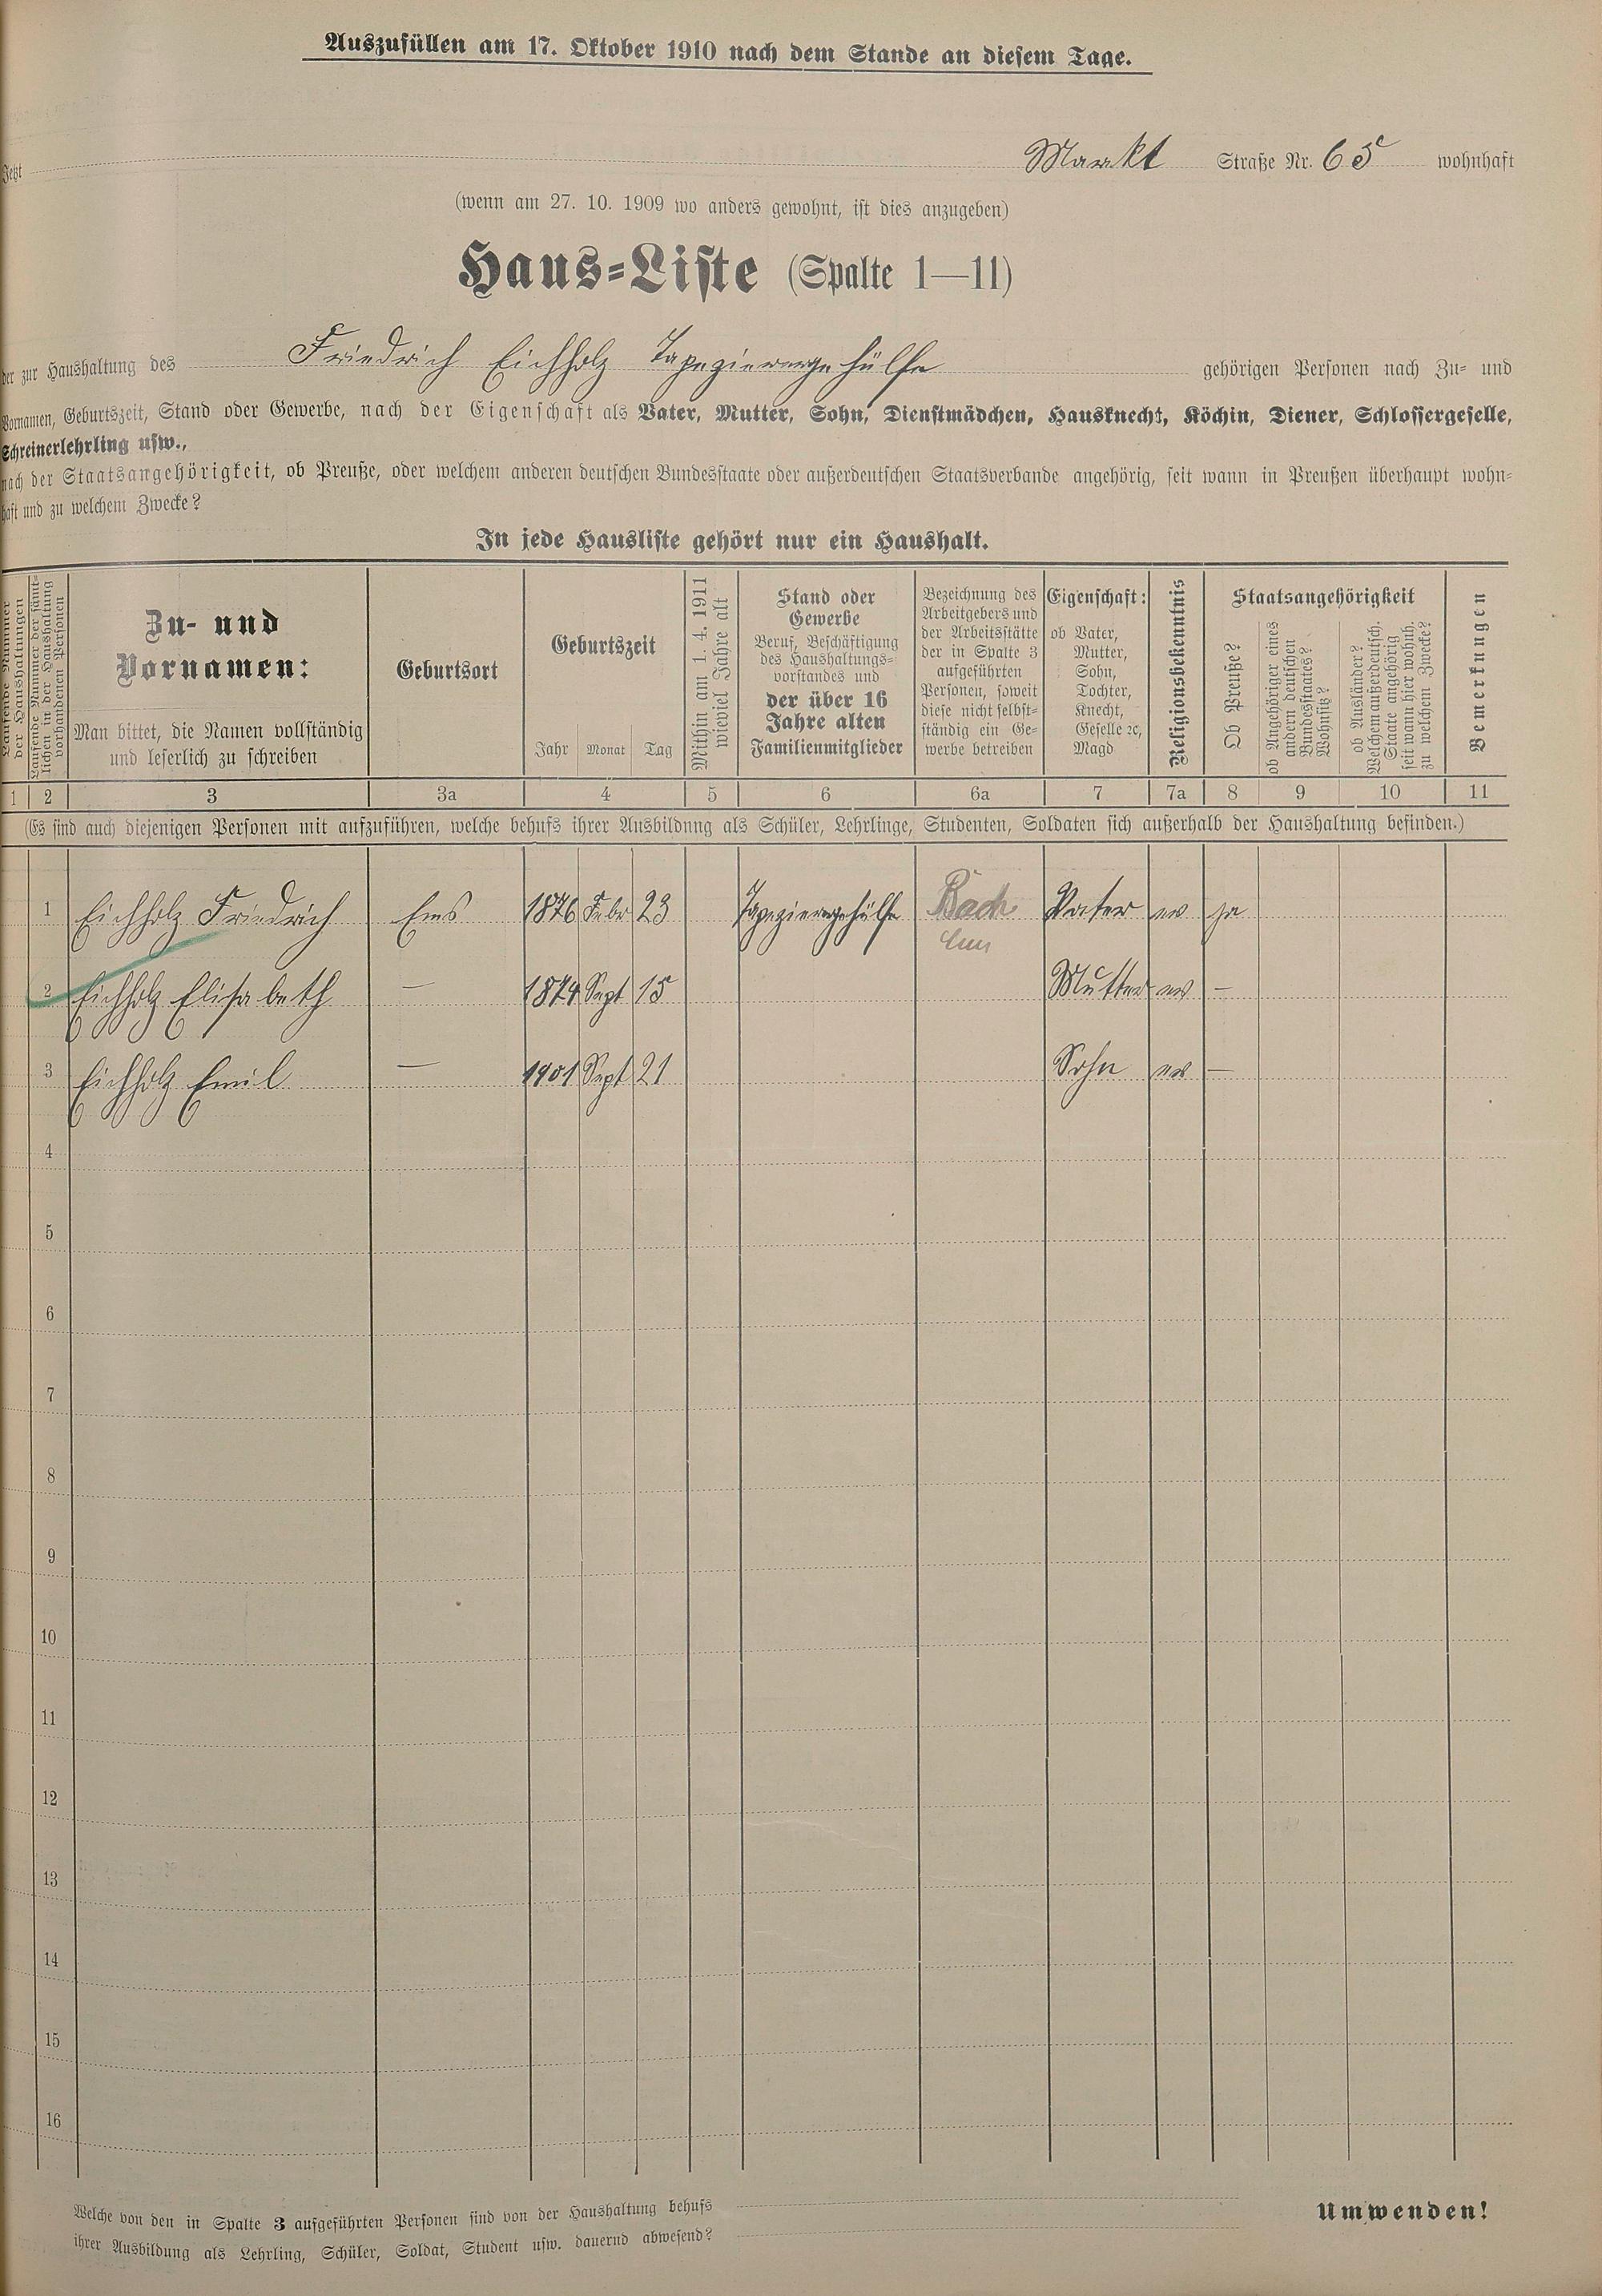 Auszufüllen am 17. Oktober 1910 nach dem Stande an diesem Tage.
Jetzt Markt Straße Nr. 65 wohnhaft
(wenn am 27. 10. 1909 wo anders gewohnt, ist dies anzugeben)
Haus-Liste (Spalte 1—11)
der zur Haushaltung des Friedrich Eichholz Tapezierergehülfe gehörigen Personen nach Zu- und
Vornamen, Geburtszeit, Stand oder Gewerbe, nach der Eigenschaft als Vater, Mutter, Sohn, Dienstmädchen, Hausknecht, Köchin, Diener, Schlossergeselle,
Schreinerlehrling usw.,
nach der Staatsangehörigkeit, ob Preuße, oder welchem anderen deutschen Bundesstaate oder außerdeutschen Staatsverbande angehörig, seit wann in Preußen überhaupt wohn-
haft und zu welchem Zwecke?
In jede Hausliste gehört nur ein Haushalt.
Laufende Nummer
der Haushaltungen
Laufende Nummer der sämt-
lichen in der Haushaltung
vorhandenen Personen
Zu- und
Vornamen:
Man bittet, die Namen vollständig
und leserlich zu schreiben
Geburtsort
Geburtszeit
Jahr Monat Tag
Mithin am 1. 4. 1911
wieviel Jahre alt
Stand oder
Gewerbe
Beruf, Beschäftigung
des Haushaltungs-
vorstandes und
der über 16
Jahre alten
Familienmitglieder
Bezeichnung des
Arbeitgebers und
der Arbeitsstätte
der in Spalte 3
aufgeführten
Personen, soweit
diese nicht selbst-
ständig ein Ge-
werbe betreiben
Eigenschaft:
ob Vater,
Mutter,
Sohn,
Tochter,
Knecht,
Geselle ꝛc,
Magd
Religionsbekenntnis
Staatsangehörigkeit
Ob Preuße?
ob Angehöriger eines
andern deutschen
Bundesstaates?
Wohnsitz?
ob Ausländer?
Welchem außerdeutsch.
Staate angehörig
seit wann hier wohnh.
zu welchem Zwecke?
Bemerkungen
1 2 3 3a 4 5 6 6a 7 7a 8 9 10 11
(Es sind auch diejenigen Personen mit aufzuführen, welche behufs ihrer Ausbildung als Schüler, Lehrlinge, Studenten, Soldaten sich außerhalb der Haushaltung befinden.)
1 Eichholz Friedrich Ems 1876 Febr 23 Tapezierergehülfe Bach Vater ev ja
Ems
2 Eichholz Elisabeth — 1874 Sept 15 Mutter ev —
3 Eichholz Emil — 1901 Sept 21 Sohn ev —
4
5
6
7
8
9
10
11
12
13
14
15
16
Welche von den in Spalte 3 aufgeführten Personen sind von der Haushaltung behufs
ihrer Ausbildung als Lehrling, Schüler, Soldat, Student usw. dauernd abwesend?
Umwenden!